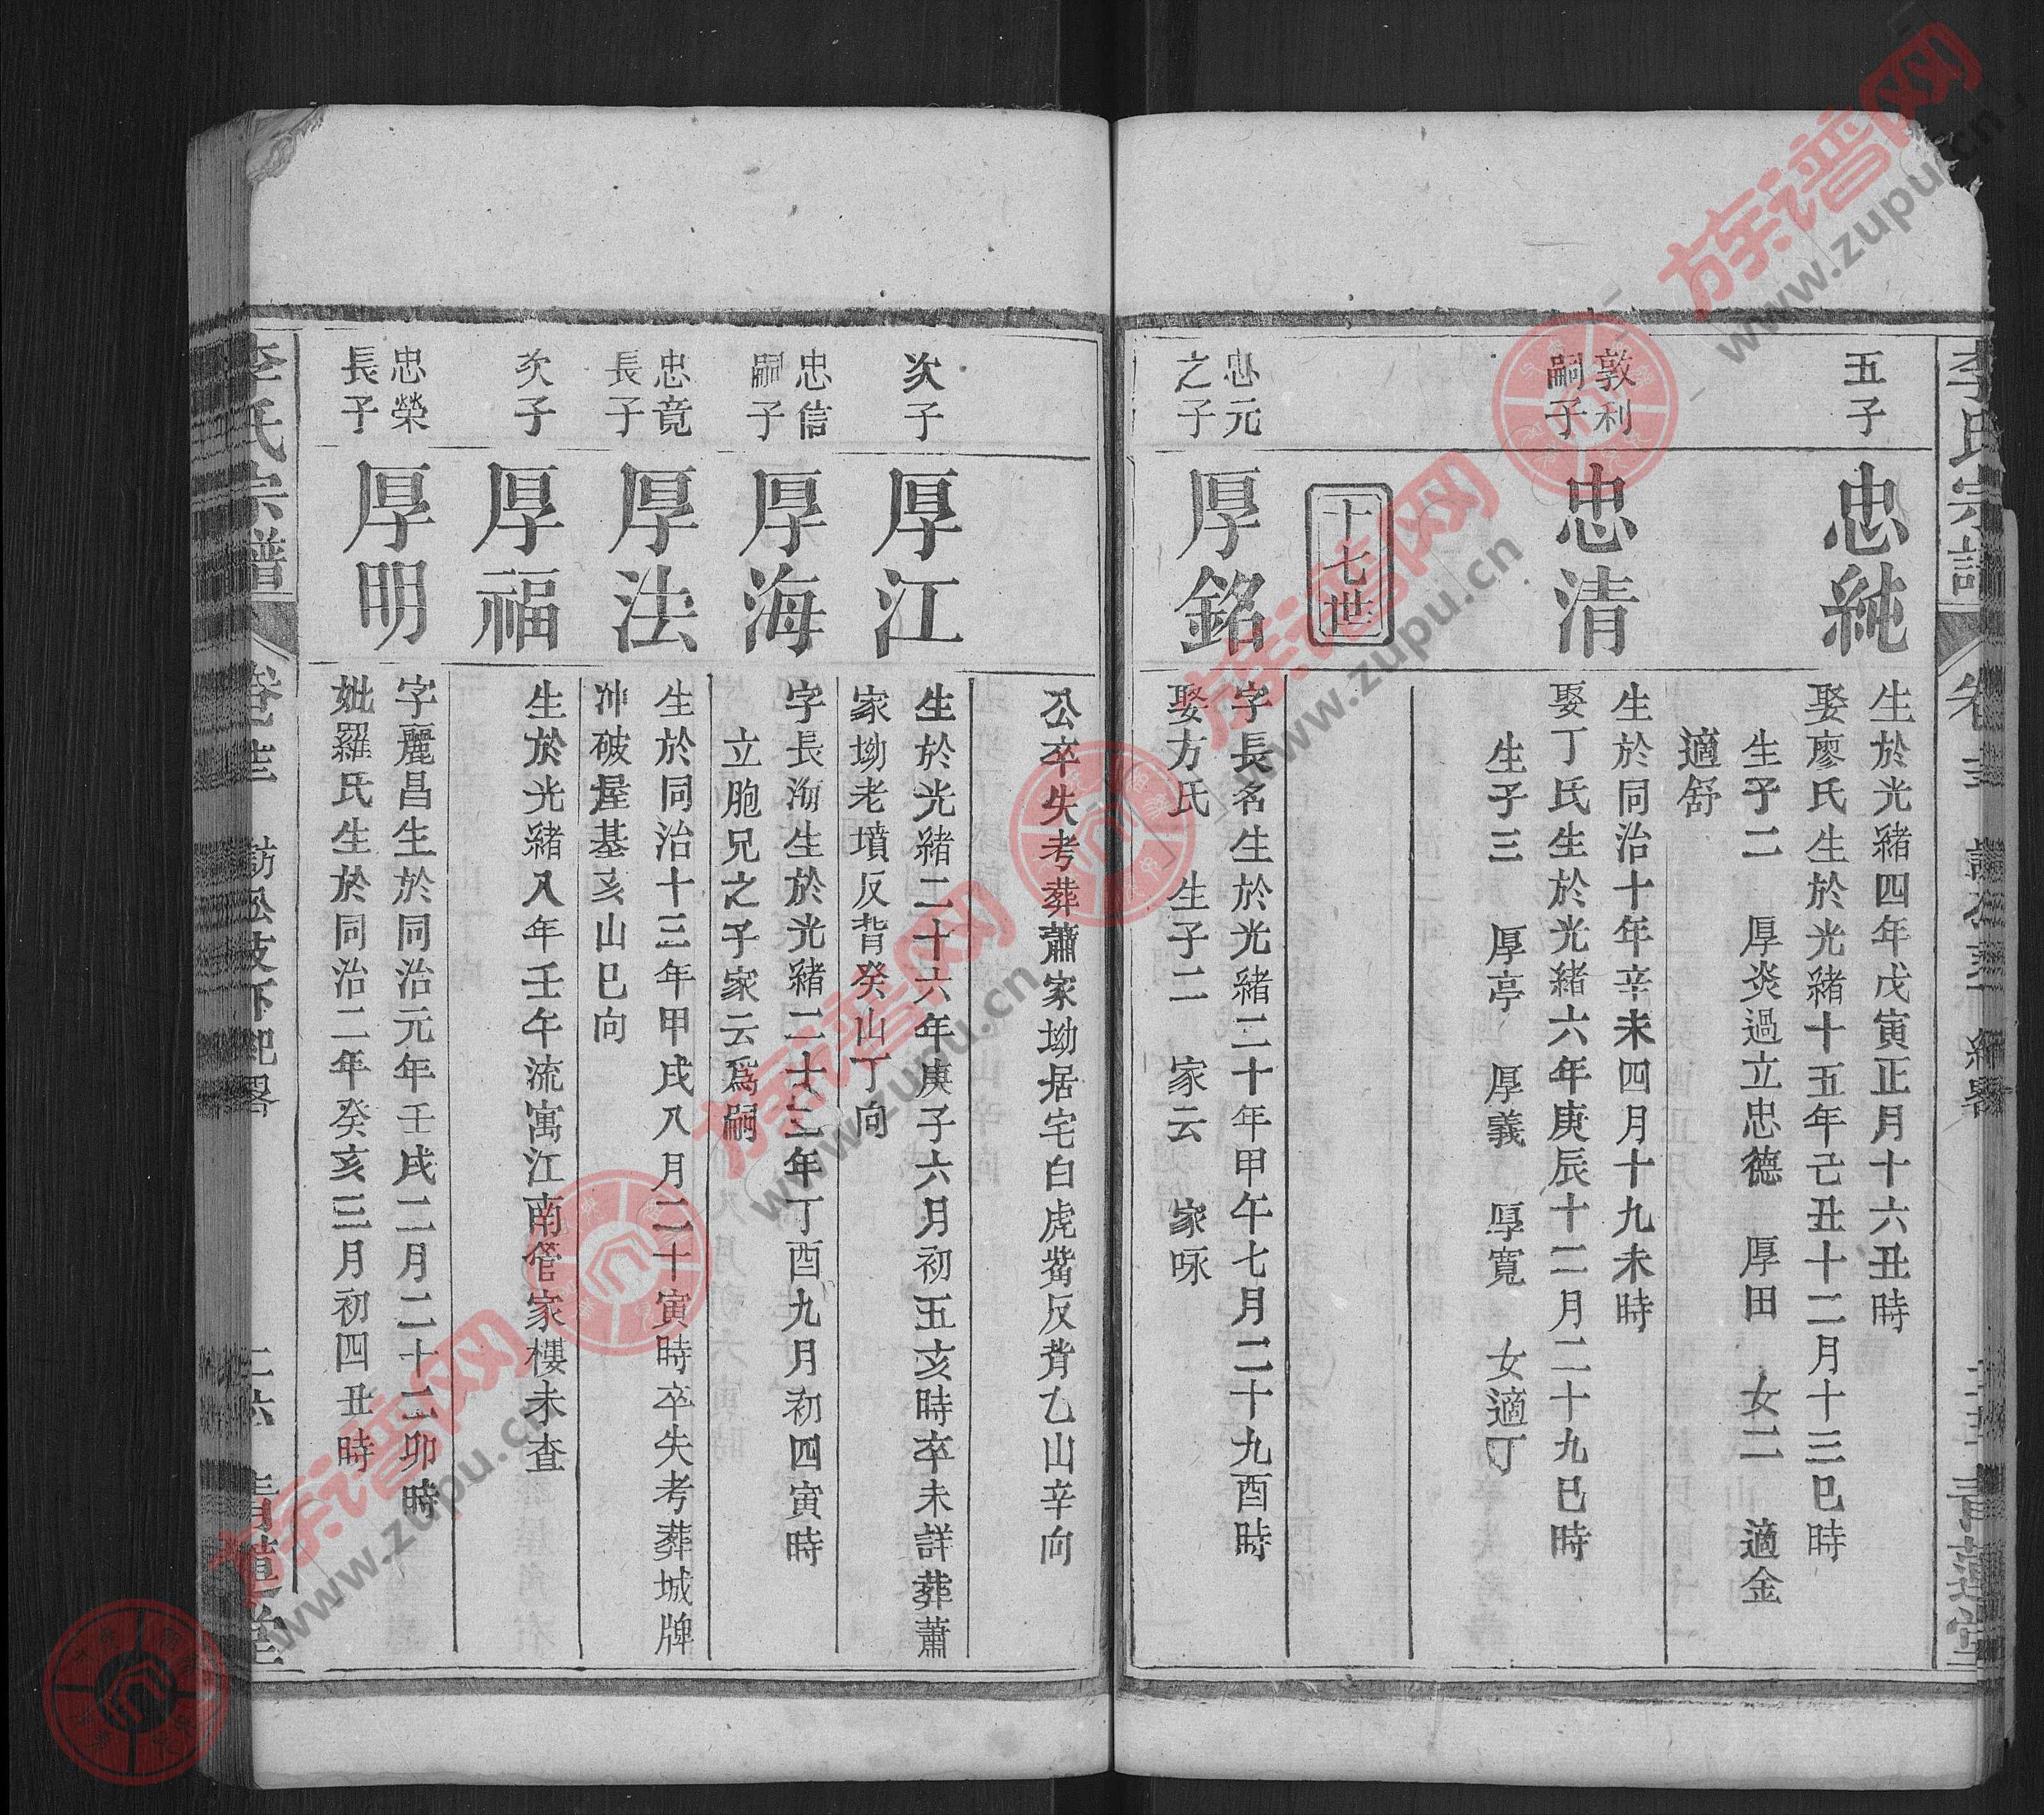 李氏宗譜
五子
忠純
生於光緒四年戊寅正月十六丑時
娶廖氏生於光緒十五年己丑十二月十三巳時
生子二 厚炎過立忠德 厚田 女二 適金
適舒
敦利
嗣子
忠清
生於同治十年辛未四月十九未時
娶丁氏生於光緒六年庚辰十二月二十九巳時
生子三 厚亭 厚義 厚寬 女適丁
十七世
忠元
之子
厚銘
字長名生於光緒二十年甲午七月二十九酉時
娶方氏 生子二 家云 家咏
公卒失考葬蕭家坳居宅白虎嘴反背乙山辛向
次子
厚江
生於光緒二十六年庚子六月初五亥時卒未詳葬蕭
家坳老墳反背癸山丁向
忠信
嗣子
厚海
字長海生於光緒二十三年丁酉九月初四寅時
立胞兄之子家云爲嗣
忠竟
長子
厚法
生於同治十三年甲戌八月二十寅時卒失考葬城牌
冲破屋基亥山巳向
次子
厚福
生於光緒八年壬午流寓江南管家樓未查
忠榮
長子
厚明
字麗昌生於同治元年壬戌二月二十二卯時
妣羅氏生於同治二年癸亥三月初四丑時
李氏宗譜
青蓮堂
族谱网
www.zupu.cn
族谱网
www.zupu.cn
族谱网
www.zupu.cn
族谱网
www.zupu.cn